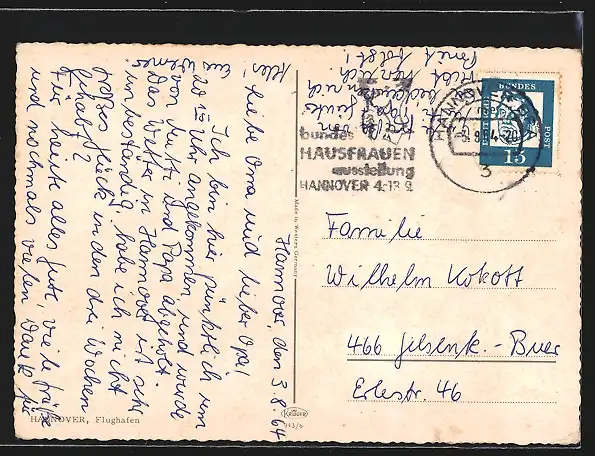 Hannover, den 3.8.64
Liebe Oma und lieber Opa!
Ich bin hier pünktlich um
20 15 Uhr angekommen und wurde
von Mutti und Papa abgeholt.
Das Wetter in Hannover ist sehr
unbeständig. habe ich nicht
großes Glück in den drei Wochen
gehabt?
Für heute alles Gute, viele Grüße
und nochmals vielen Dank für
alles!
HANNOVER, Flughafen
Made in Western Germany
KRÜGER
943/6
bundes
HAUSFRAUEN
ausstellung
HANNOVER 4.-13.9.
HANNOVER
DEUTSCHE
BUNDES
POST
15
Familie
Wilhelm Kokott
466 Gelsenk.-Buer
Erlestr. 46